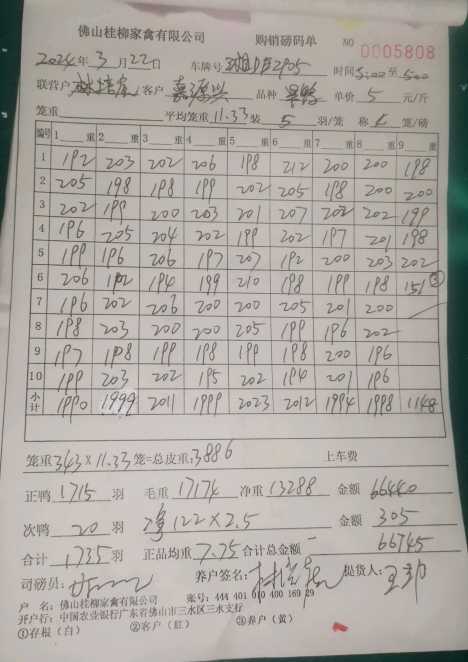 佛山桂柳家禽有限公司 购销磅码单 NO 0005808
2024年3月22日 车牌号 时间5:00至5:00
联营户 客户 嘉源兴 品种 单价 5 元/斤
笼重 平均笼重11.33装 5 羽/笼 称 6 笼/磅
编号 1 重 2 重 3 重 4 重 5 重 6 重 7 重 8 重 9 重
1 192 203 202 206 198 212 200 200 198
2 205 198 198 199 202 205 198 200 200
3 202 199 200 203 201 207 202 202 199
4 196 205 204 202 199 202 197 201 198
5 199 196 206 197 207 192 200 203 202
6 206 192 194 199 210 198 199 198 151
7 196 202 206 200 200 205 201 200
8 198 203 200 200 205 199 196 202
9 197 198 199 198 199 198 200 196
10 199 203 202 195 202 194 201 196
小计 1990 1999 2011 1999 2023 2012 1994 1998 1148
笼重343×11.33笼=总皮重:3886 上车费
正鸭 1715 羽 毛重 17174 净重 13288 金额 66440
次鸭 20 羽 净122×2.5 金额 305
合计 1735 羽 正品均重 7.75 合计总金额 66745
司磅员: 养户签名: 提货人:
户 名:佛山桂柳家禽有限公司 账号:444 401 010 400 169 29
开户行:中国农业银行广东省佛山市三水区三水支行
①存根(白) ②客户(红) ③养户(黄)